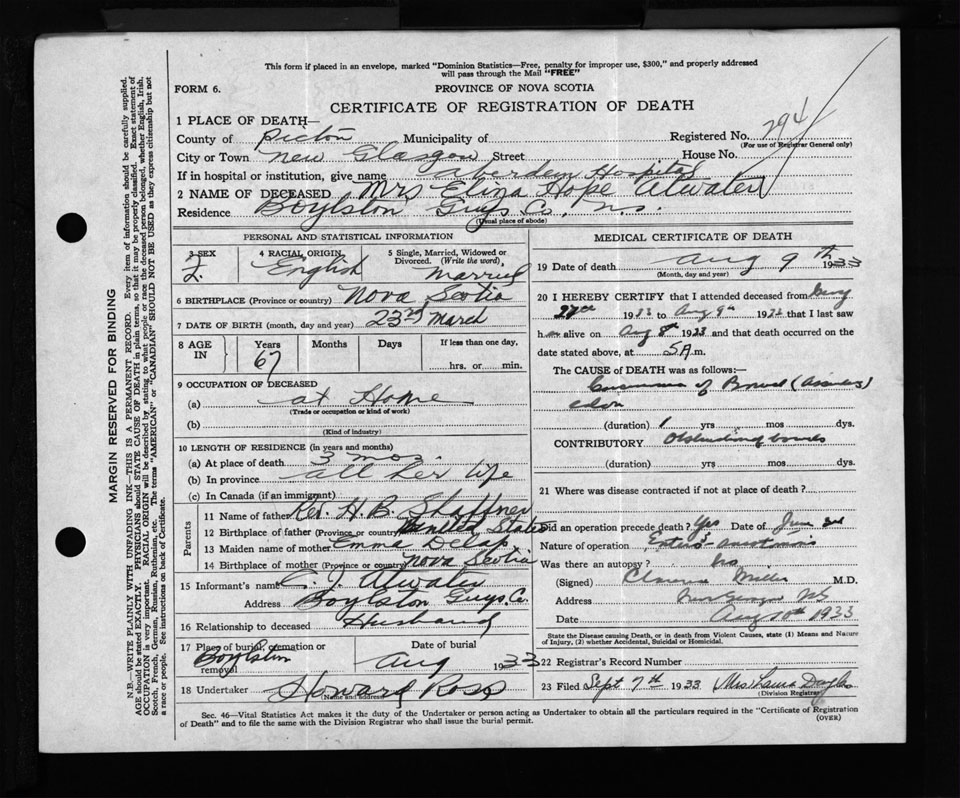 This form if placed in an envelope, marked "Dominion Statistics—Free, penalty for improper use, $300," and properly addressed
will pass through the Mail "FREE"
FORM 6.
PROVINCE OF NOVA SCOTIA
CERTIFICATE OF REGISTRATION OF DEATH
1 PLACE OF DEATH—
County of Pictou Municipality of Registered No. 294
(For use of Registrar General only)
City or Town New Glasgow Street House No.
If in hospital or institution, give name Aberdeen Hospital
2 NAME OF DECEASED Mrs Eliza Hope Atwater
Residence Boylston Guys. Co., N.S.
(Usual place of abode)
PERSONAL AND STATISTICAL INFORMATION
3 SEX 4 RACIAL ORIGIN 5 Single, Married, Widowed or
Divorced. (Write the word)
F. English Married
6 BIRTHPLACE (Province or country) Nova Scotia
7 DATE OF BIRTH (month, day and year) 23rd March
8 AGE IN Years Months Days If less than one day,
67 hrs. or min.
9 OCCUPATION OF DECEASED
(a) at Home
(Trade or occupation or kind of work)
(b)
(Kind of industry)
10 LENGTH OF RESIDENCE (in years and months)
(a) At place of death 3 mos.
(b) In province all her life
(c) In Canada (if an immigrant)
Parents
11 Name of father Rev. H. B. Shaffner
12 Birthplace of father (Province or country) United States
13 Maiden name of mother Emma Delap
14 Birthplace of mother (Province or country) Nova Scotia
15 Informant's name C. J. Atwater
Address Boylston Guys. Co.
16 Relationship to deceased Husband
17 Place of burial, cremation or removal Boylston
Date of burial Aug 1933
18 Undertaker Howard Ross
(Name and address)
MEDICAL CERTIFICATE OF DEATH
19 Date of death Aug 9th 1933
(Month, day and year)
20 I HEREBY CERTIFY that I attended deceased from
27th 1933 to Aug 9th 1933 that I last saw
h alive on Aug 8th 1933 and that death occurred on the
date stated above, at 5 A.m.
The CAUSE of DEATH was as follows:—
Carcinoma of Bowel
colon
(duration) 1 yrs mos dys.
CONTRIBUTORY Obstruction of bowels
(duration) yrs mos dys.
21 Where was disease contracted if not at place of death?
Did an operation precede death? Yes Date of June 3rd
Nature of operation Entero-anastomosis
Was there an autopsy? No
(Signed) Clarence Miller M.D.
Address New Glasgow NS
Date Aug 10th 1933
State the Disease causing Death, or in death from Violent Causes, state (1) Means and Nature
of Injury, (2) whether Accidental, Suicidal or Homicidal.
22 Registrar's Record Number
23 Filed Sept 7th 1933 Mrs. Laura Douglas
(Division Registrar)
Sec. 46—Vital Statistics Act makes it the duty of the Undertaker or person acting as Undertaker to obtain all the particulars required in the "Certificate of Registration
of Death" and to file the same with the Division Registrar who shall issue the burial permit.
(OVER)
MARGIN RESERVED FOR BINDING
N.B.—WRITE PLAINLY WITH UNFADING INK—THIS IS A PERMANENT RECORD. Every item of information should be carefully supplied.
AGE should be stated EXACTLY. PHYSICIANS should STATE CAUSE OF DEATH in plain terms, so that it may be properly classified. Exact statement of
OCCUPATION is very important. RACIAL ORIGIN will be described by stating to what people or race the deceased person belonged, whether English, Irish,
Scotch, French, German, Russian, Ruthenian, etc. The terms "AMERICAN" or "CANADIAN" SHOULD NOT BE USED as they express citizenship but not
a race or people. See instructions on back of Certificate.